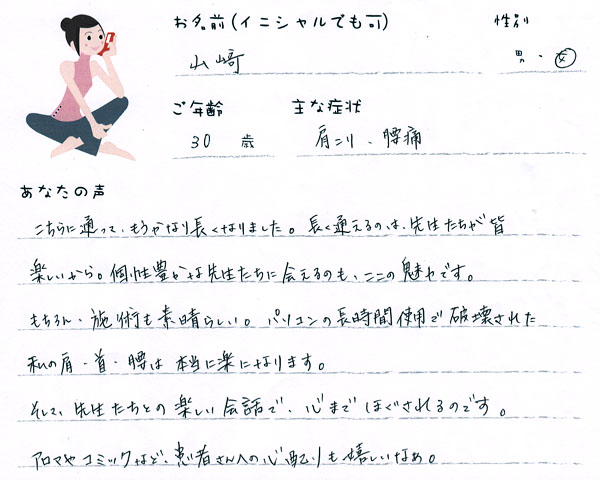 お名前(イニシャルでも可) 性別
山﨑 男・女
ご年齢 主な症状
30 歳 肩こり、腰痛
あなたの声
こちらに通って、もうかなり長くなりました。長く通えるのは、先生たちが皆
楽しいから。個性豊かな先生たちに会えるのも、ここの魅力です。
もちろん、施術も素晴らしい。パソコンの長時間使用で破壊された
私の肩・首・腰は本当に楽になります。
そして、先生たちとの楽しい会話で、心までほぐされるのです。
アロマやコミックなど、患者さんへの心配りも嬉しいなぁ。